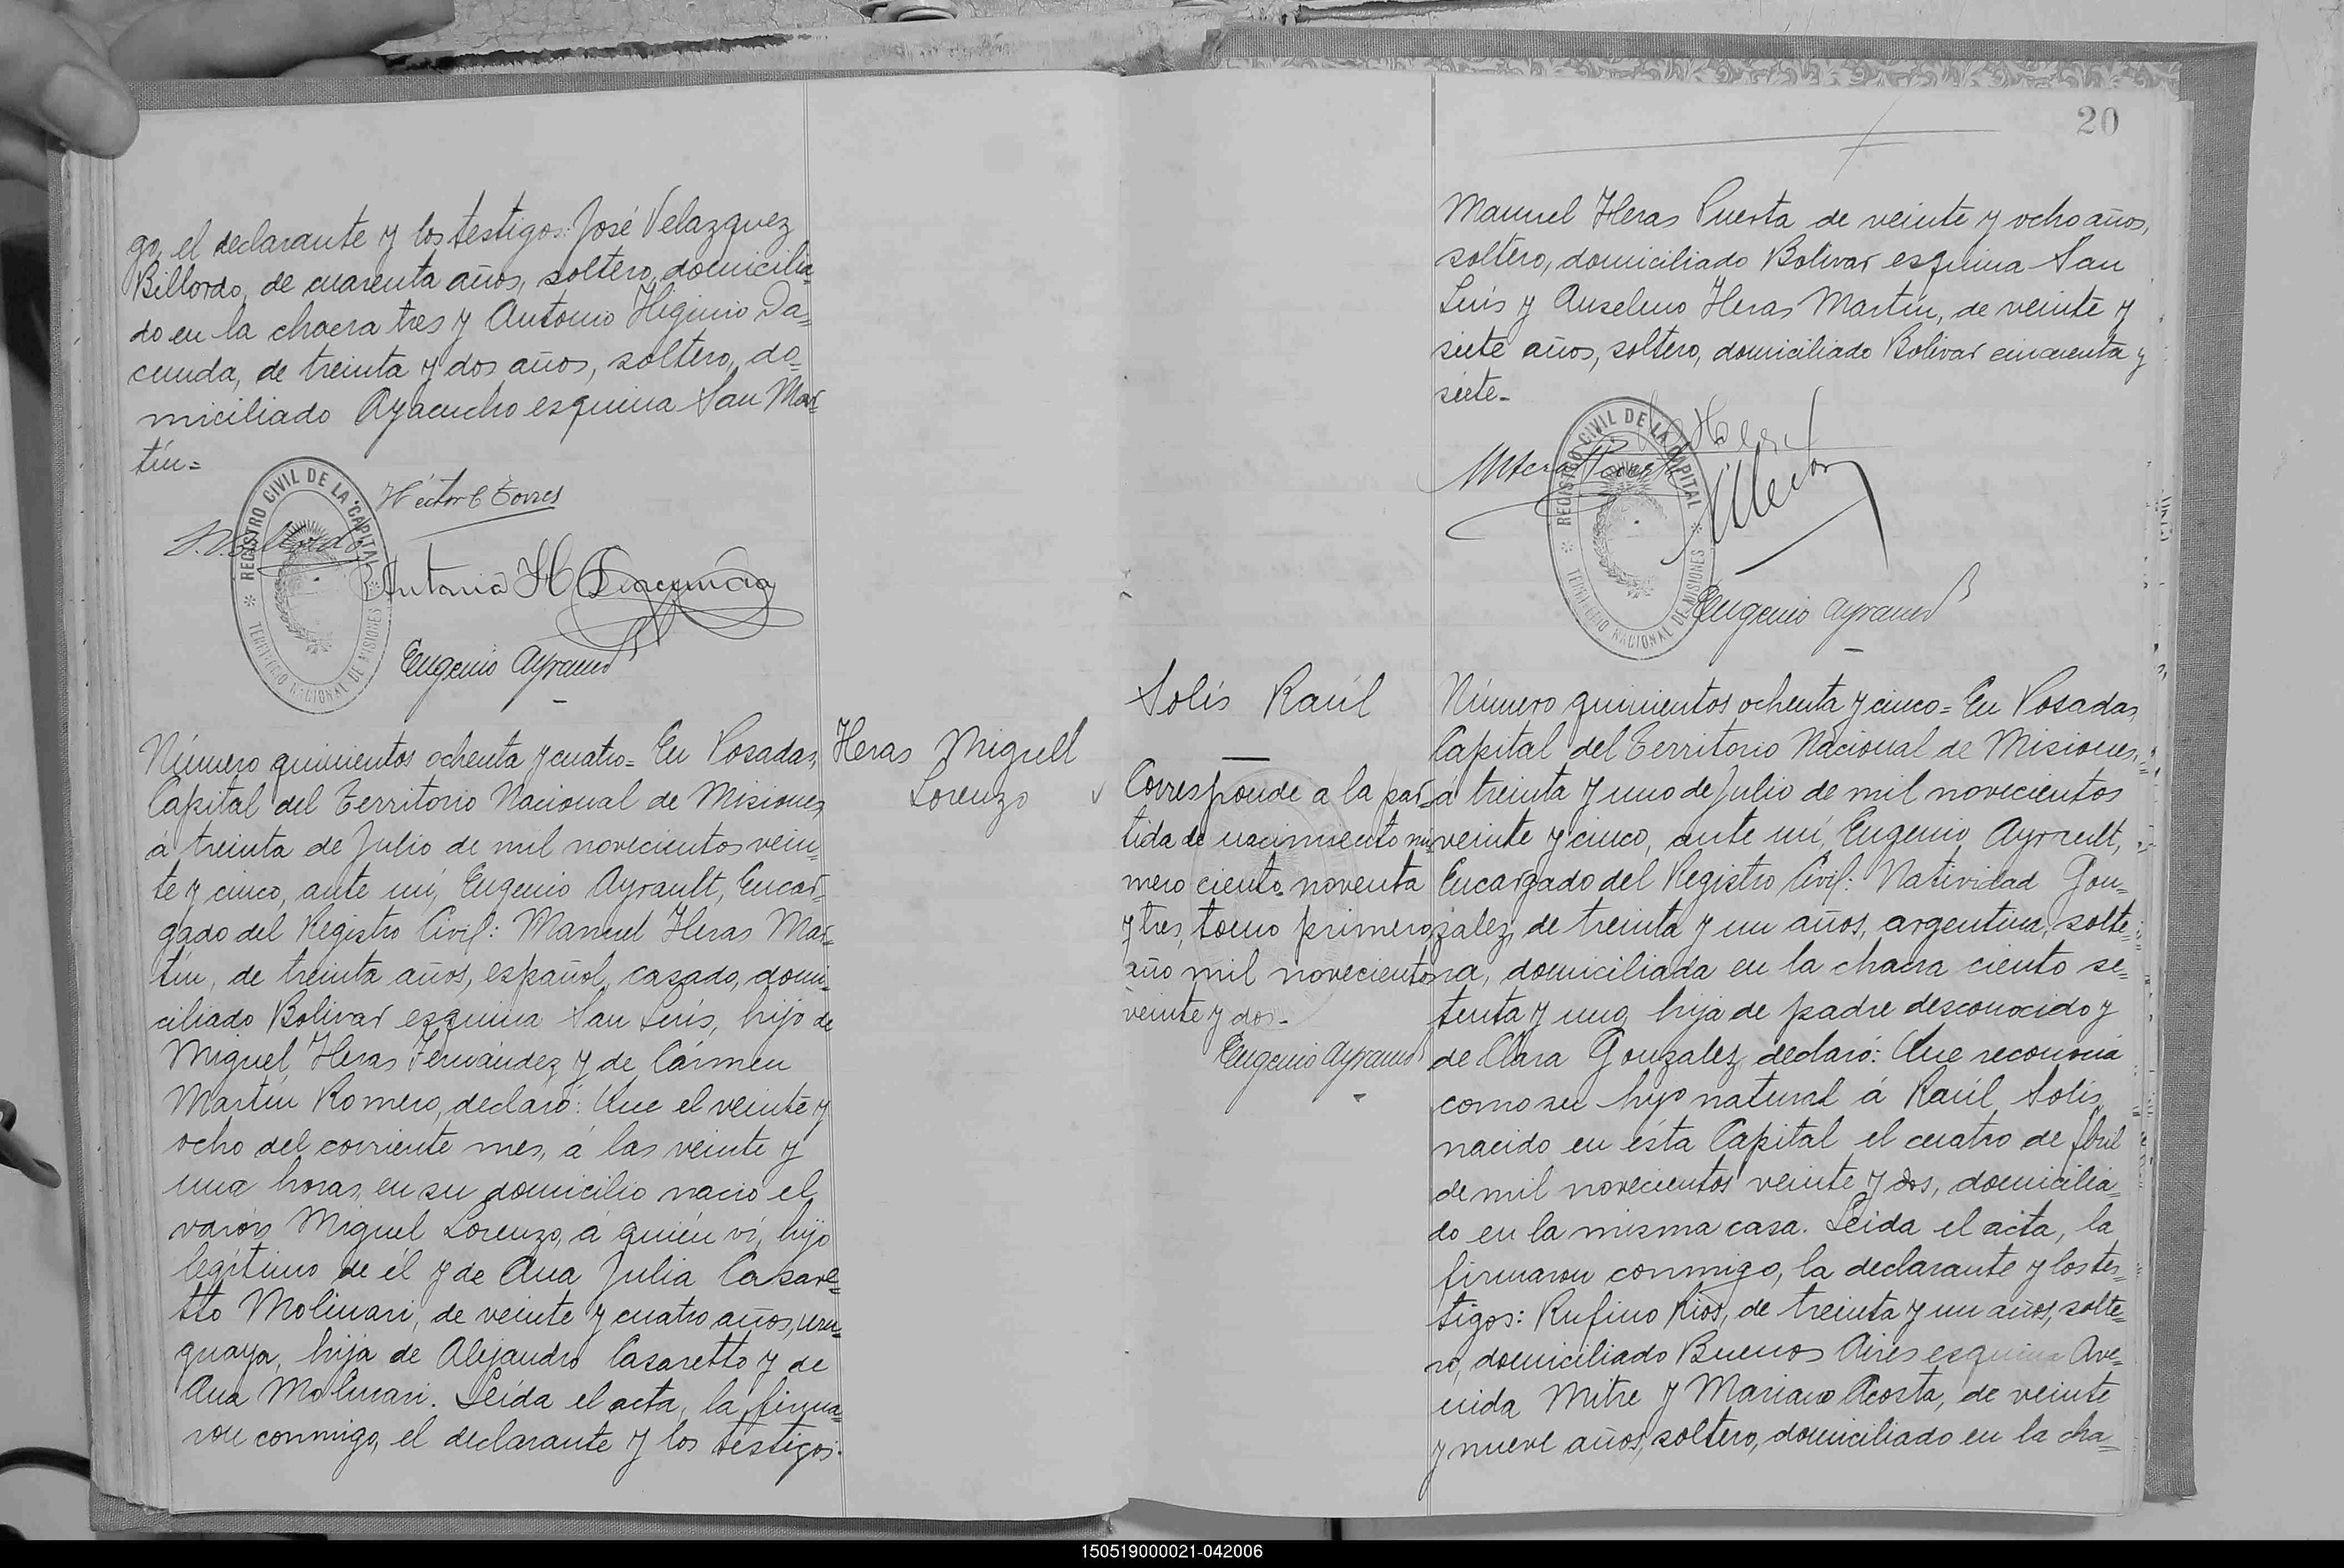 go, el declarante y los testigos: José Velazquez
Billordo, de cuarenta años, soltero, domicilia=
do en la chacra tres y Antonio Higinio Da=
cunda, de treinta y dos años, soltero, do=
miciliado Ayacucho esquina San Mar=
tín=
Héctor C Torres
REGISTRO CIVIL DE LA CAPITAL
TERRITORIO NACIONAL DE MISIONES
Antonio H Dacunda
Eugenio Ayrault
Heras Miguel
Lorenzo
Número quinientos ochenta y cuatro= En Posadas,
Capital del Territorio Nacional de Misiones,
á treinta de Julio de mil novecientos vein=
te y cinco, ante mí, Eugenio Ayrault, Encar=
gado del Registro Civil: Manuel Heras Mar=
tín, de treinta años, español, casado, domi=
ciliado Bolivar esquina San Luís, hijo de
Miguel Heras Fernández y de Cármen
Martín Romero, declaró: Que el veinte y
ocho del corriente mes, á las veinte y
una horas, en su domicilio nació el
varón Miguel Lorenzo, á quién ví, hijo
legítimo de él y de Ana Julia Casare=
tto Molinari, de veinte y cuatro años, uru=
guaya, hija de Alejandro Casaretto y de
Ana Molinari. Leída el acta, la firma=
ron conmigo, el declarante y los testigos:
20
Manuel Heras Puerta de veinte y ocho años,
soltero, domiciliado Bolivar esquina San
Luís y Anselmo Heras Martín, de veinte y
siete años, soltero, domiciliado Bolivar cincuenta y
siete-
REGISTRO CIVIL DE LA CAPITAL
TERRITORIO NACIONAL DE MISIONES
Eugenio Ayrault
Solís Raúl
Corresponde a la par=
tida de nacimiento nú=
mero ciento noventa
y tres, tomo primero,
año mil novecientos
veinte y dos-
Eugenio Ayrault
Número quinientos ochenta y cinco= En Posadas,
Capital del Territorio Nacional de Misiones,
á treinta y uno de Julio de mil novecientos
veinte y cinco, ante mí, Eugenio Ayrault,
Encargado del Registro Civil: Natividad Gon=
zalez, de treinta y un años, argentina, solte=
ra, domiciliada en la chacra ciento se=
tenta y uno, hija de padre desconocido y
de Clara Gonzalez, declaró: Que reconocía
como su hijo natural á Raúl Solís,
nacido en ésta Capital el cuatro de Abril
de mil novecientos veinte y dos, domicilia=
do en la misma casa. Leída el acta, la
firmaron conmigo, la declarante y los tes=
tigos: Rufino Rios, de treinta y un años, solte=
ro, domiciliado Buenos Aires esquina Ave=
nida Mitre y Mariano Acosta, de veinte
y nueve años, soltero, domiciliado en la cha=
150519000021-042006